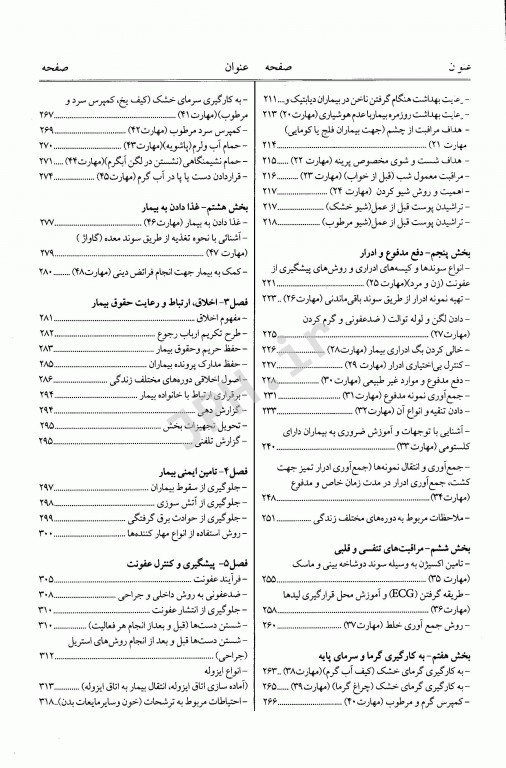 عنوان صفحه
- رعایت بهداشت هنگام گرفتن ناخن در بیماران دیابتیک و...۲۱۱
- رعایت بهداشت روزمره بیمار با عدم هوشیاری (مهارت۲۰) ۲۱۳
- هدف مراقبت از چشم (جهت بیماران فلج یا کومایی)
(مهارت ۲۱) ..... ۲۱۴
- هدف شست و شوی مخصوص پرینه (مهارت ۲۲) ..... ۲۱۵
- مراقبت معمول شب (قبل از خواب) (مهارت ۲۳) ..... ۲۱۶
- اهمیت و روش شیو کردن (مهارت ۲۴) ..... ۲۱۷
- تراشیدن پوست قبل از عمل(شیو خشک) ..... ۲۱۷
- تراشیدن پوست قبل از عمل(شیو مرطوب) ..... ۲۱۸
بخش پنجم- دفع مدفوع و ادرار
- انواع سوندها و کیسه‌های ادراری و روش‌های پیشگیری از
عفونت (زن و مرد)(مهارت ۲۵) ..... ۲۲۱
- تهیه نمونه ادرار از طریق سوند باقی‌ماندنی (مهارت ۲۶) ..۲۲۳
- دادن لگن و لوله توالت ( ضدعفونی و گرم کردن
(مهارت۲۷) ..... ۲۲۵
- خالی کردن بگ ادراری بیمار (مهارت۲۸) ..... ۲۲۶
- کنترل بی‌اختیاری ادرار (مهارت ۲۹) ..... ۲۲۷
- دفع مدفوع و موارد غیر طبیعی (مهارت ۳۰) ..... ۲۲۸
- جمع‌آوری نمونه مدفوع (مهارت ۳۱) ..... ۲۳۱
- دادن تنقیه و انواع آن (مهارت۳۲) ..... ۲۳۳
- آشنایی با توجهات و آموزش ضروری به بیماران دارای
کلستومی (مهارت ۳۳) ..... ۲۴۰
- جمع‌آوری و انتقال نمونه‌ها (جمع‌آوری ادرار تمیز جهت
کشت، جمع‌آوری ادرار در مدت زمان خاص و مدفوع
(مهارت۳۴) ..... ۲۴۸
- ملاحظات مربوط به دوره‌های مختلف زندگی ..... ۲۵۱
بخش ششم- مراقبت‌های تنفسی و قلبی
- تامین اکسیژن به وسیله سوند دوشاخه بینی و ماسک
(مهارت ۳۵) ..... ۲۵۵
- طریقه گرفتن (ECG) و آموزش محل قرارگیری لیدها
(مهارت۳۶) ..... ۲۵۸
- روش جمع آوری خلط (مهارت۳۷) ..... ۲۶۰
بخش هفتم- به کارگیری گرما و سرمای پایه
- به کارگیری گرمای خشک (کیف آب گرم)(مهارت۳۸) ..۲۶۳
- به کارگیری گرمای خشک (چراغ گرما) (مهارت ۳۹) ..... ۲۶۵
- کمپرس گرم و مرطوب (مهارت ۴۰) ..... ۲۶۶
عنوان صفحه
- به کارگیری سرمای خشک (کیف یخ، کمپرس سرد و
مرطوب)(مهارت۴۱) ..... ۲۶۷
- کمپرس سرد مرطوب (مهارت۴۲) ..... ۲۶۹
- حمام آب ولرم(پاشویه)(مهارت۴۳) ..... ۲۷۰
- حمام نشیمنگاهی (نشستن در لگن آبگرم)(مهارت۴۴) .... ۲۷۱
- قراردادن دست یا پا در آب گرم (مهارت۴۵) ..... ۲۷۴
بخش هشتم- غذا دادن به بیمار
- غذا دادن به بیمار (مهارت۴۶) ..... ۲۷۷
- آشنائی با نحوه تغذیه از طریق سوند معده (گاواژ )
(مهارت ۴۷) ..... ۲۷۹
- کمک به بیمار جهت انجام فرائض دینی (مهارت۴۸) ..... ۲۸۰
فصل۳- اخلاق، ارتباط و رعایت حقوق بیمار
- مفهوم اخلاق ..... ۲۸۱
- طرح تکریم ارباب رجوع ..... ۲۸۲
- حفظ حریم وحقوق بیمار ..... ۲۸۳
- حفظ مدارک پرونده بیماران ..... ۲۸۵
- اصول اخلاقی دوره‌های مختلف زندگی ..... ۲۸۶
- برقراری ارتباط با خانواده بیمار ..... ۲۹۴
- گزارش دهی ..... ۲۹۴
- تحویل تجهیزات بخش ..... ۲۹۵
- گزارش تلفنی ..... ۲۹۵
فصل۴- تامین ایمنی بیمار
- جلوگیری از سقوط بیماران ..... ۲۹۷
- جلوگیری از آتش سوزی ..... ۲۹۸
- جلوگیری از حوادث برق گرفتگی ..... ۲۹۹
- روش استفاده از انواع مهار کننده‌ها ..... ۳۰۰
فصل۵- پیشگیری و کنترل عفونت
- فرآیند عفونت ..... ۳۰۵
- ضدعفونی به روش داخلی و جراحی ..... ۳۰۸
- جلوگیری از انتشار عفونت ..... ۳۱۰
- شستن دست‌ها (قبل و بعداز انجام هر فعالیت) ..... ۳۱۰
- شستن دست‌ها قبل و بعداز انجام روش‌های استریل
(جراحی) ..... ۳۱۲
- انواع ایزوله
(آماده سازی اتاق ایزوله، انتقال بیمار به اتاق ایزوله) ..... ۳۱۳
- احتیاطات مربوط به ترشحات (خون وسایرمایعات بدن)..۳۱۸